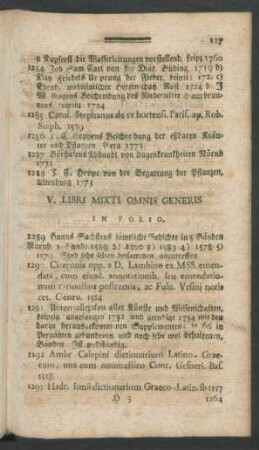 117
n Kupferst die Wasserleitungen vorstellend. leipz 1760
1284 Joh Sam Carl von der Diät. Büding. 1719 b)
Nic Wagners Beschreibung des Niederselter
nens leipzig 1724
1285 Carol. Stephanus de re hortensi. Paris. ap. Rob.
Steph. 1539
1286 Beschreibung der eßbaren Kräu-
ter und Pflanzen Gera 1772
1287 Börhafens Abhandl von Augenkrankheiten Nürnb
1771
1288 von der Begattung der Pflanzen,
Altenburg 1773
V. LIBRI MIXTI OMNIS GENERIS
IN FOLIO.
1289 Hanns Sachsens sämtliche Gedichte in 5 Bänden
Nürnb. 1 Band 1589 2) 1590 3) 1583 4) 1578 5)
1579 Sind sehr selten beisammen anzutreffen
1290 Ciceronis opp. a D. Lambino ex MSS. emen-
data, cum eiusd. annotationib. seu emendationum
rationibus postremis, ac Fulv. Ursini notis
cet. Genev. 1584
1291 Universallexikon aller Künste und Wissenschaften,
leipzig angefangen 1732 und geendigt 1754 mit den
darzu herauskommenen Supplementen: in 66 in
Pergamen gebundenen, und noch sehr wol behaltenen,
Bänden Ist vollständig.
1292 Ambr Calepini dictionarium Latino-Grae-
cum, una cum onomastico Conr. Gesneri. Bas.
1558
1293 Hadr. Iunii dictionarium Graeco-Latin. ib 1557
H 3
1264